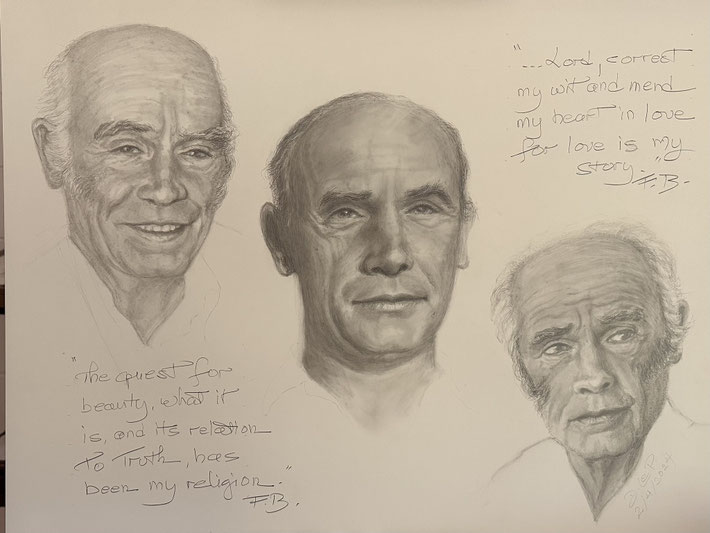 "...Lord, correct
my wit and mend
my heart in love
for love is my
story." F.B.
"The quest for
beauty, what it
is, and its relation
to Truth, has
been my religion."
F.B.